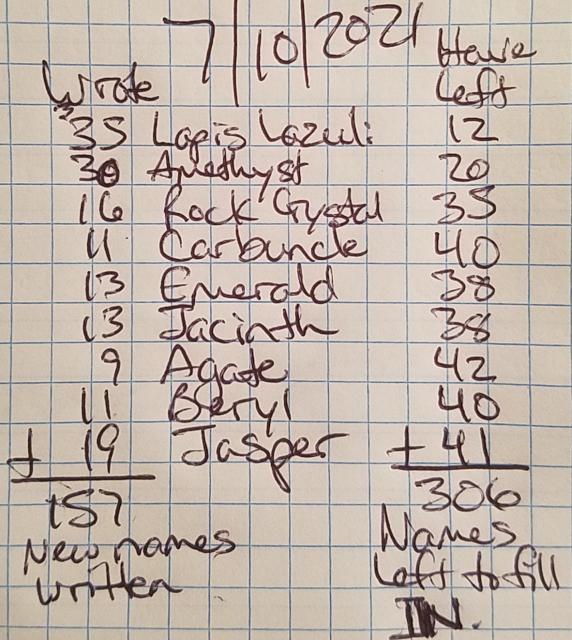 7/10/2021
Wrote Have Left
35 Lapis Lazuli 12
30 Amethyst 20
16 Rock Crystal 35
11 Carbuncle 40
13 Emerald 38
13 Jacinth 38
9 Agate 42
11 Beryl 40
+ 19 Jasper + 41
157 306
New names Names
written Left to fill
IN.